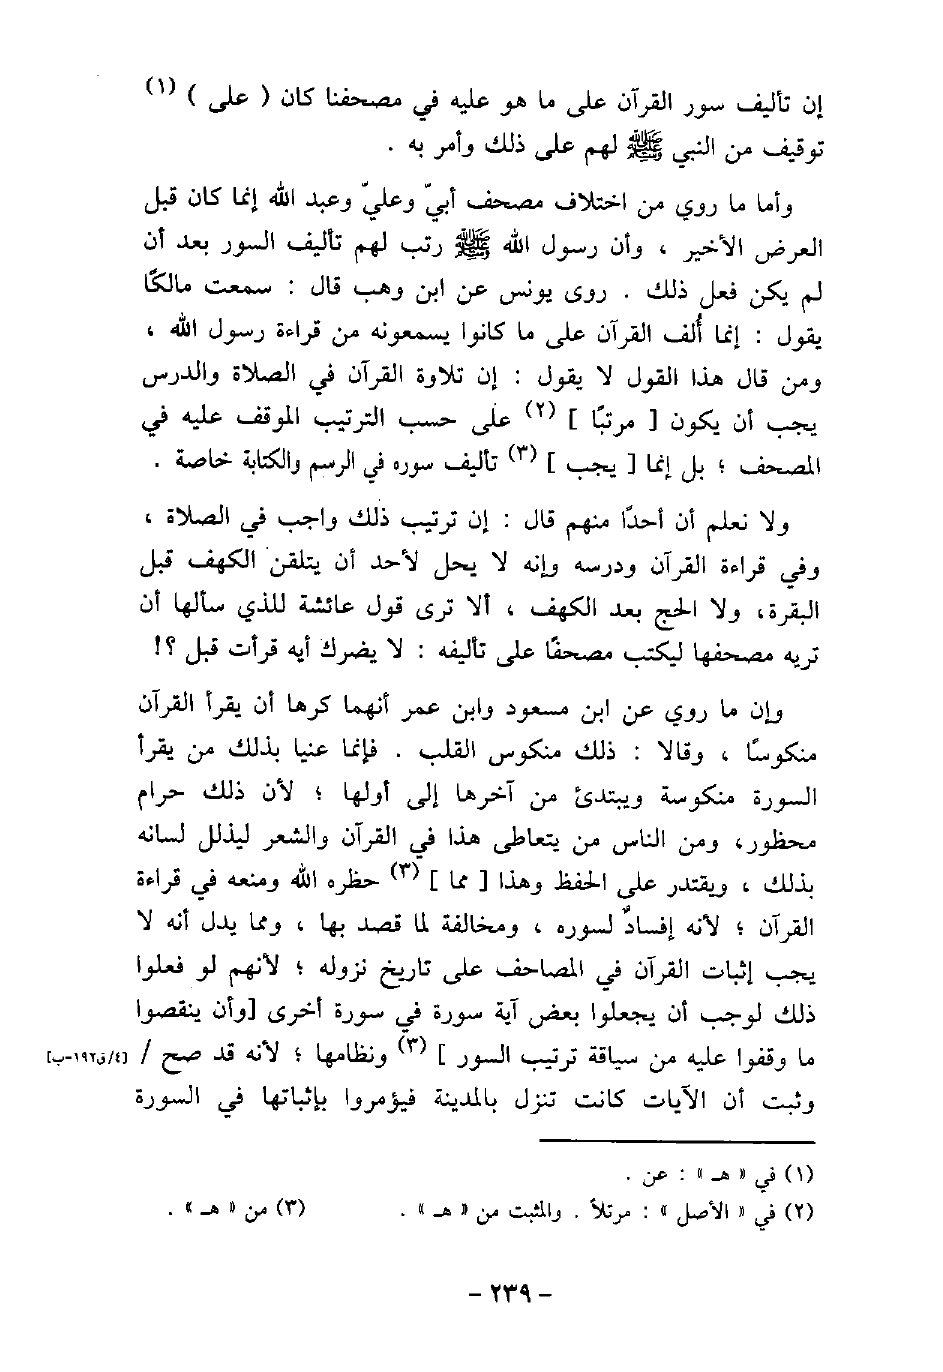 إن تأليف سور القرآن على ما هو عليه في مصحفنا كان ( على ) (١)
توقيف من النبي ﷺ لهم على ذلك وأمر به .
وأما ما روي من اختلاف مصحف أبيّ وعليّ وعبد الله إنما كان قبل
العرض الأخير ، وأن رسول الله ﷺ رتب لهم تأليف السور بعد أن
لم يكن فعل ذلك . روى يونس عن ابن وهب قال : سمعت مالكًا
يقول : إنما أُلف القرآن على ما كانوا يسمعونه من قراءة رسول الله ،
ومن قال هذا القول لا يقول : إن تلاوة القرآن في الصلاة والدرس
يجب أن يكون [ مرتبًا ] (٢) على حسب الترتيب الموقف عليه في
المصحف ؛ بل إنما [ يجب ] (٣) تأليف سوره في الرسم والكتابة خاصة .
ولا نعلم أن أحدًا منهم قال : إن ترتيب ذلك واجب في الصلاة ،
وفي قراءة القرآن ودرسه وإنه لا يحل لأحد أن يتلقن الكهف قبل
البقرة، ولا الحج بعد الكهف ، ألا ترى قول عائشة للذي سألها أن
تريه مصحفها ليكتب مصحفًا على تأليفه : لا يضرك أيه قرأت قبل ؟!
وإن ما روي عن ابن مسعود وابن عمر أنهما كرها أن يقرأ القرآن
منكوسًا ، وقالا : ذلك منكوس القلب . فإنما عنيا بذلك من يقرأ
السورة منكوسة ويبتدئ من آخرها إلى أولها ؛ لأن ذلك حرام
محظور، ومن الناس من يتعاطى هذا في القرآن والشعر ليذلل لسانه
بذلك ، ويقتدر على الحفظ وهذا [ مما ] (٣) حظره الله ومنعه في قراءة
القرآن ؛ لأنه إفسادٌ لسوره ، ومخالفة لما قصد بها ، ومما يدل أنه لا
يجب إثبات القرآن في المصاحف على تاريخ نزوله ؛ لأنهم لو فعلوا
ذلك لوجب أن يجعلوا بعض آية سورة في سورة أخرى [وأن ينقصوا
ما وقفوا عليه من سياقة ترتيب السور ] (٣) ونظامها ؛ لأنه قد صح / [٤/ق١٩٢-ب]
وثبت أن الآيات كانت تنزل بالمدينة فيؤمروا بإثباتها في السورة
(١) في « هـ » : عن .
(٢) في « الأصل » : مرتلاً . والمثبت من « هـ » . (٣) من « هـ » .
- ٢٣٩ -